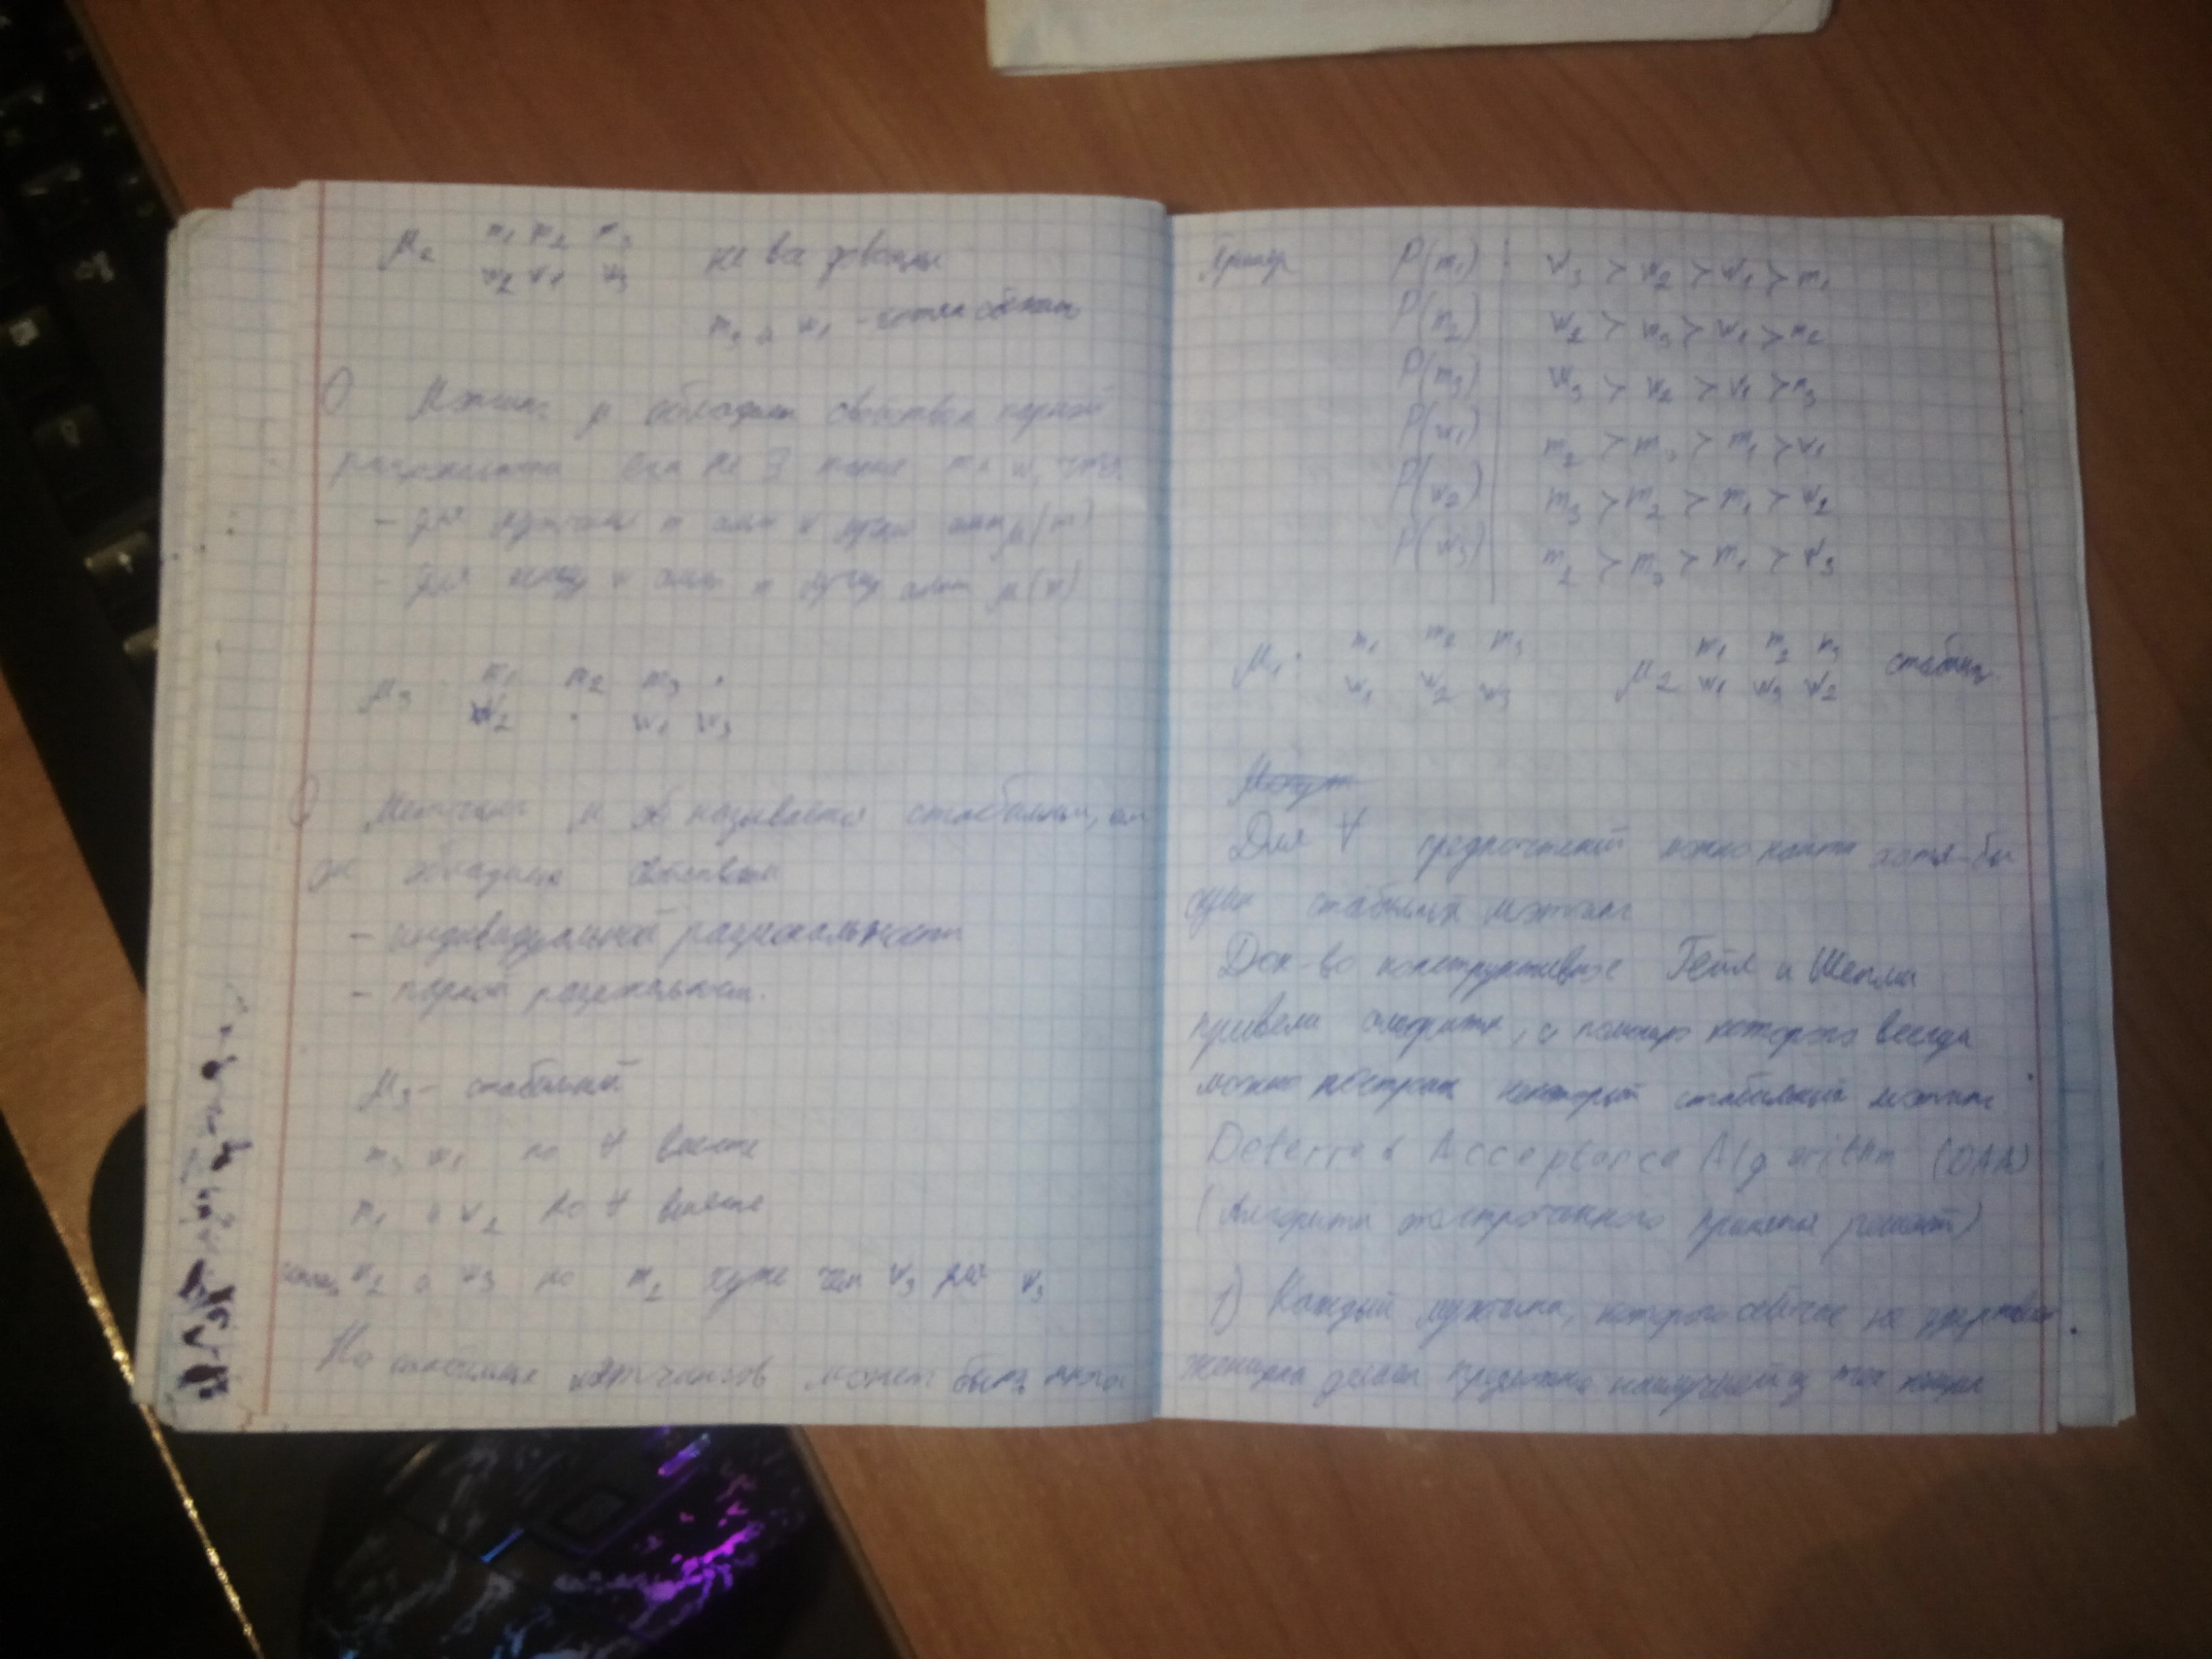 μ₂ m₁ m₂ m₃ не все довольны
w₂ w₁ w₃
m₃ и w₁ -
О Мэтчинг μ обладает свойством парной
рациональности если не ∃ пары m и w, что
- для мужчины m альт w лучше альт μ(m)
- для женщ w альт m лучше альт μ(w)
μ₃ m₁ m₂ m₃ ·
w₂ · w₁ w₃
О Мэтчинг μ называется стабильным, если
он обладает свойствами
- индивидуальной рациональности
- парной рациональности.
μ₃ - стабильный
m₃ w₁ по ∀ вместе
m₁ и w₂ по ∀ вместе
w₃ но m₂ хуже чем w₃ для w₃
Но стабильных мэтчингов может быть много
Пример P(m₁) w₃ > w₂ > w₁ > m₁
P(m₂) w₂ > w₃ > w₁ > m₂
P(m₃) w₃ > w₂ > w₁ > m₃
P(w₁) m₂ > m₃ > m₁ > w₁
P(w₂) m₃ > m₂ > m₁ > w₂
P(w₃) m₂ > m₃ > m₁ > w₃
μ₁: m₁ m₂ m₃ μ₂ m₁ m₂ m₃ стабильн.
w₁ w₂ w₃ w₁ w₃ w₂
Для ∀ предпочтений можно найти хотя-бы
один стабильный мэтчинг
Док-во конструктивное Гейл и Шепли
привели алгоритм, с помощью которого всегда
можно построить некоторый стабильный мэтчинг
Deferred Acceptance Algorithm (DAA)
(Алгоритм отстроченного принятия решений)
1) Каждый мужчина, которого сейчас не удерживает
женщина делает предложение наилучшей из тех которые